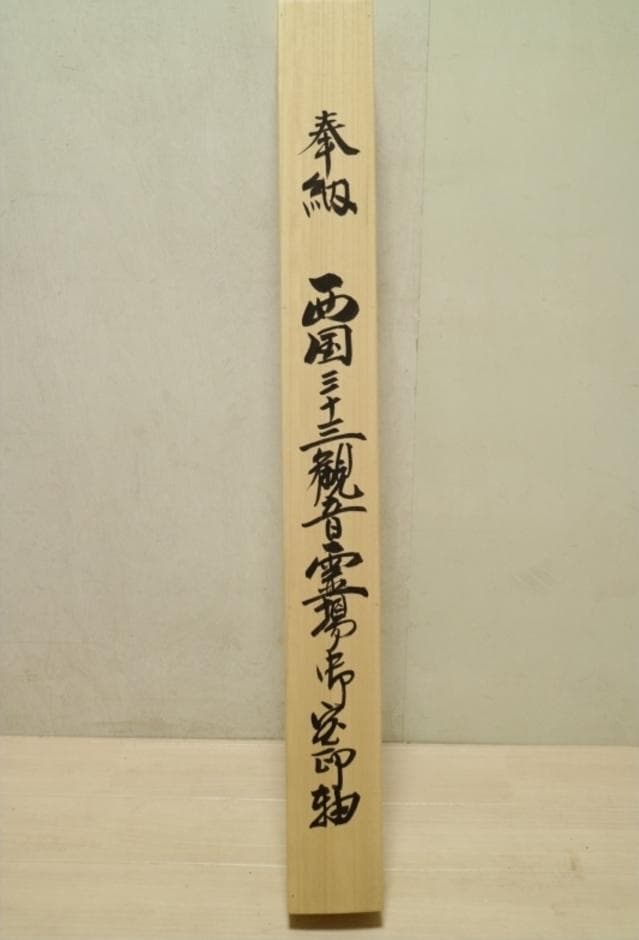 奉納 西国三十三観音霊場御宝印軸